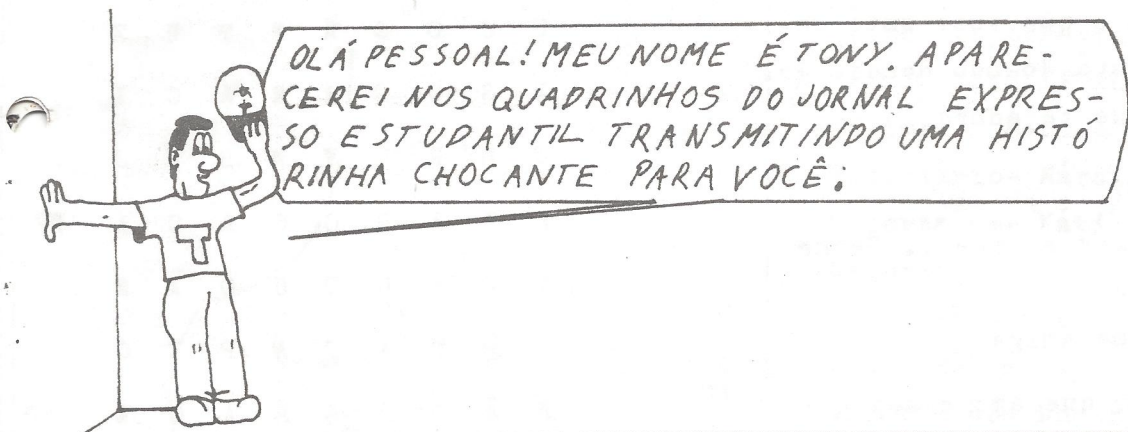 OLÁ PESSOAL! MEU NOME É TONY. APARE-
CEREI NOS QUADRINHOS DO JORNAL EXPRES-
SO ESTUDANTIL TRANSMITINDO UMA HISTÓ
RINHA CHOCANTE PARA VOCÊ:
T